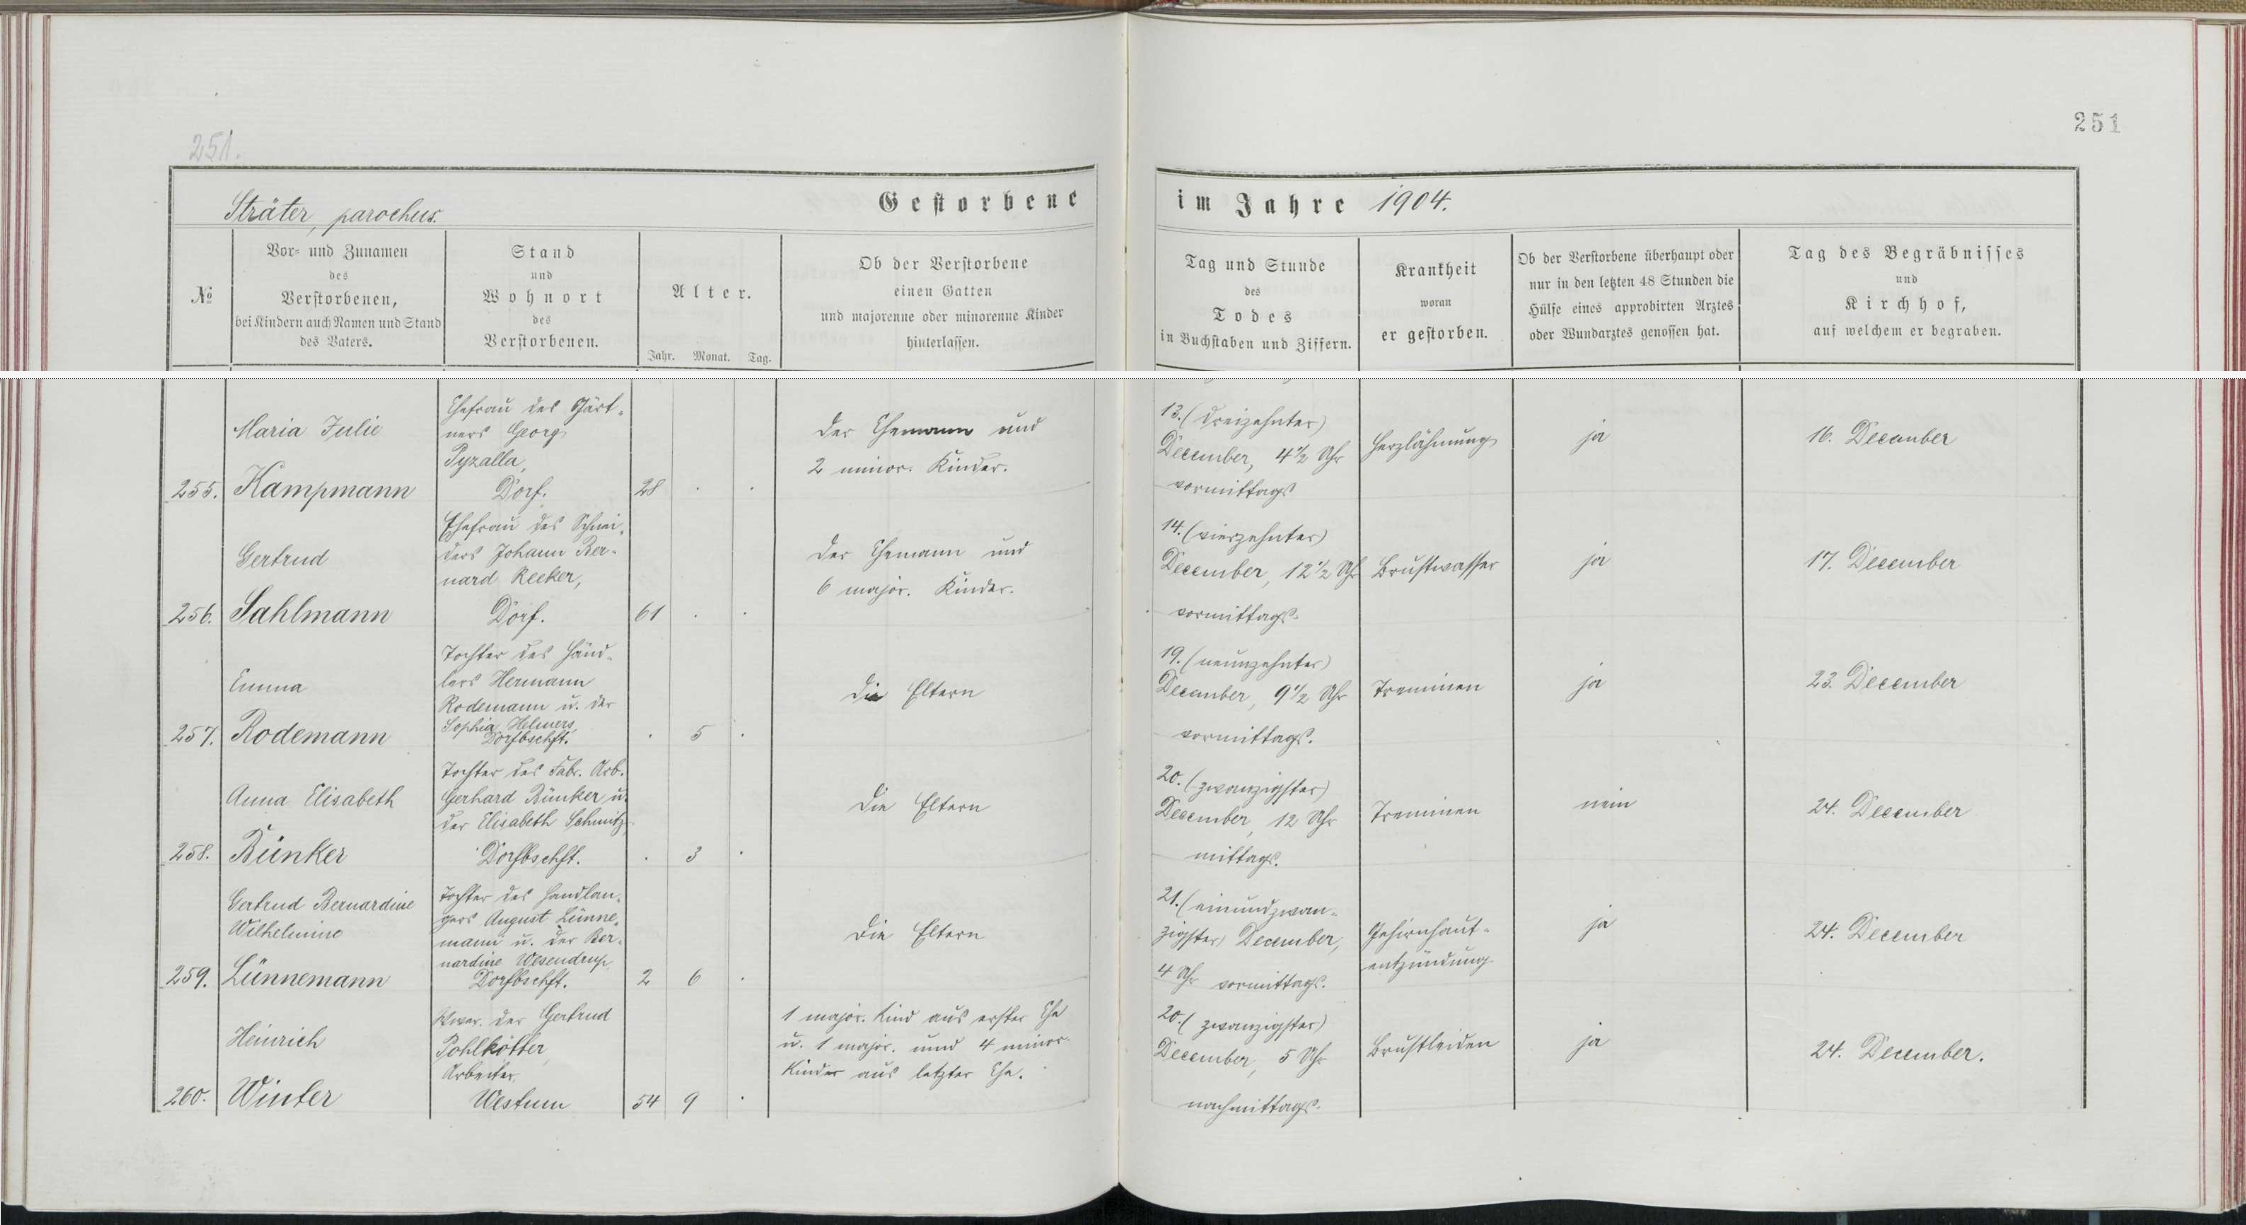 251.
251
Sträter, parochus.
Gestorbene
im Jahre 1904.
№
Vor- und Zunamen
des
Verstorbenen,
bei Kindern auch Namen und Stand
des Vaters.
Stand
und
Wohnort
des
Verstorbenen.
Alter.
Jahr. Monat. Tag.
Ob der Verstorbene
einen Gatten
und majorenne oder minorenne Kinder
hinterlassen.
Tag und Stunde
des
Todes
in Buchstaben und Ziffern.
Krankheit
woran
er gestorben.
Ob der Verstorbene überhaupt oder
nur in den letzten 48 Stunden die
Hülfe eines approbirten Arztes
oder Wundarztes genossen hat.
Tag des Begräbnisses
und
Kirchhof,
auf welchem er begraben.
255.
Maria Julie
Kampmann
Ehefrau des Gärt-
ners Georg
Pyzalla,
Dorf.
28 . .
Der Ehemann und
2 minor. Kinder.
13. (dreizehnter)
December, 4½ Uhr
vormittags
Herzlähmung
ja
16. December
256.
Gertrud
Sahlmann
Ehefrau des Schnei-
ders Johann Ber-
nard Recker,
Dorf.
61 . .
Der Ehemann und
6 major. Kinder.
14. (vierzehnter)
December, 12½ Uhr
vormittags.
Brustwasser
ja
17. December
257.
Emma
Rodemann
Tochter des Händ-
lers Hermann
Rodemann u. der
Sophia Helmers,
Dorfbschft.
. 5 .
Die Eltern
19. (neunzehnter)
December, 9½ Uhr
vormittags.
Treminen
ja
23. December
258.
Anna Elisabeth
Bünker
Tochter des Fabr. Arb.
Gerhard Bünker u.
der Elisabeth Schmitz
Dorfbschft.
. 3 .
Die Eltern
20. (zwanzigster)
December, 12 Uhr
mittags.
Treminen
nein
24. December
259.
Gertrud Bernardine
Wilhelmine
Lünnemann
Tochter des Handlan-
gers August Lünne-
mann u. der Ber-
nardine Wesendrup
Dorfbschft.
2 6 .
Die Eltern
21. (einundzwan-
zigster) December,
4 Uhr vormittags.
Gehirnhaut-
entzündung
ja
24. December
260.
Heinrich
Winter
Wwer. der Gertrud
Pohlkötter,
Arbeiter,
Westum
54 9 .
1 major. Kind aus erster Ehe
u. 1 major. und 4 minor.
Kinder aus letzter Ehe.
20. (zwanzigster)
December, 5 Uhr
nachmittags.
Brustleiden
ja
24. December.